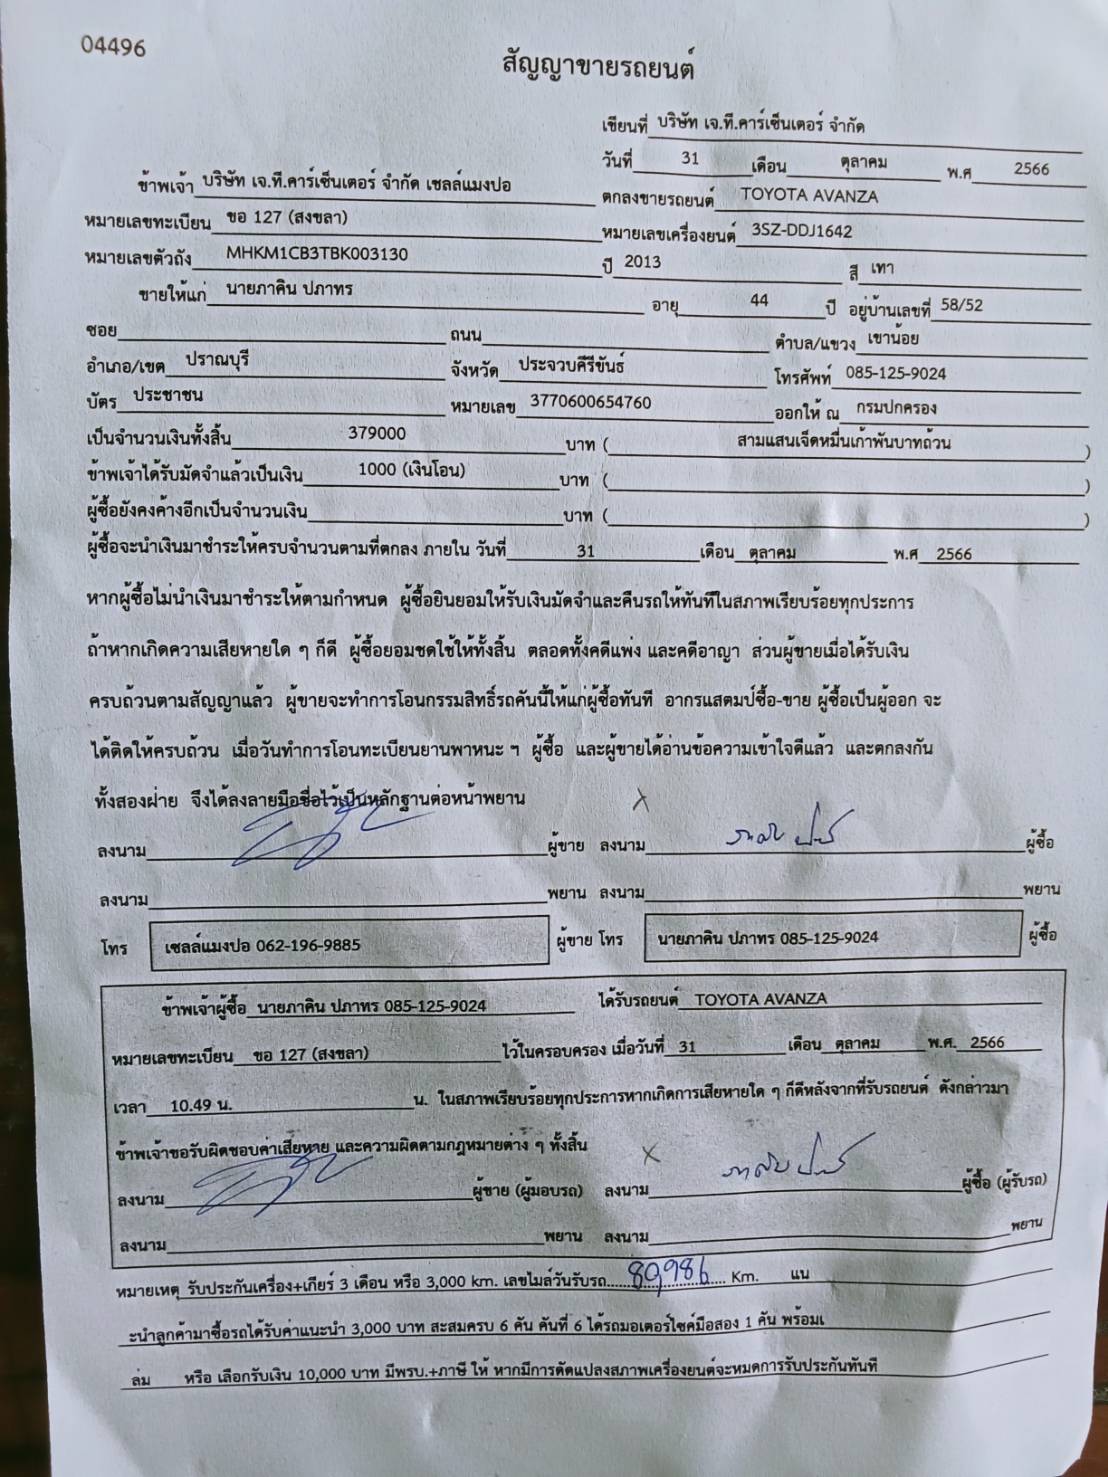 04496
สัญญาขายรถยนต์
เขียนที่ บริษัท เจ.ที.คาร์เซ็นเตอร์ จำกัด
วันที่ 31 เดือน ตุลาคม พ.ศ 2566
ข้าพเจ้า บริษัท เจ.ที.คาร์เซ็นเตอร์ จำกัด เซลล์แมงปอ ตกลงขายรถยนต์ TOYOTA AVANZA
หมายเลขทะเบียน ขอ 127 (สงขลา) หมายเลขเครื่องยนต์ 3SZ-DDJ1642
หมายเลขตัวถัง MHKM1CB3TBK003130 ปี 2013 สี เทา
ขายให้แก่ นายภาคิน ปภาทร อายุ 44 ปี อยู่บ้านเลขที่ 58/52
ซอย ถนน ตำบล/แขวง เขาน้อย
อำเภอ/เขต ปราณบุรี จังหวัด ประจวบคีรีขันธ์ โทรศัพท์ 085-125-9024
บัตร ประชาชน หมายเลข 3770600654760 ออกให้ ณ กรมปกครอง
เป็นจำนวนเงินทั้งสิ้น 379000 บาท ( สามแสนเจ็ดหมื่นเก้าพันบาทถ้วน )
ข้าพเจ้าได้รับมัดจำแล้วเป็นเงิน 1000 (เงินโอน) บาท ( )
ผู้ซื้อยังคงค้างอีกเป็นจำนวนเงิน บาท ( )
ผู้ซื้อจะนำเงินมาชำระให้ครบจำนวนตามที่ตกลง ภายใน วันที่ 31 เดือน ตุลาคม พ.ศ 2566
หากผู้ซื้อไม่นำเงินมาชำระให้ตามกำหนด ผู้ซื้อยินยอมให้รับเงินมัดจำและคืนรถให้ทันทีในสภาพเรียบร้อยทุกประการ
ถ้าหากเกิดความเสียหายใด ๆ ก็ดี ผู้ซื้อยอมชดใช้ให้ทั้งสิ้น ตลอดทั้งคดีแพ่ง และคดีอาญา ส่วนผู้ขายเมื่อได้รับเงิน
ครบถ้วนตามสัญญาแล้ว ผู้ขายจะทำการโอนกรรมสิทธิ์รถคันนี้ให้แก่ผู้ซื้อทันที อากรแสตมป์ซื้อ-ขาย ผู้ซื้อเป็นผู้ออก จะ
ได้ติดให้ครบถ้วน เมื่อวันทำการโอนทะเบียนยานพาหนะ ฯ ผู้ซื้อ และผู้ขายได้อ่านข้อความเข้าใจดีแล้ว และตกลงกัน
ทั้งสองฝ่าย จึงได้ลงลายมือชื่อไว้เป็นหลักฐานต่อหน้าพยาน
ลงนาม ผู้ขาย ลงนาม ผู้ซื้อ
ลงนาม พยาน ลงนาม พยาน
โทร เซลล์แมงปอ 062-196-9885 ผู้ขาย โทร นายภาคิน ปภาทร 085-125-9024 ผู้ซื้อ
ข้าพเจ้าผู้ซื้อ นายภาคิน ปภาทร 085-125-9024 ได้รับรถยนต์ TOYOTA AVANZA
หมายเลขทะเบียน ขอ 127 (สงขลา) ไว้ในครอบครอง เมื่อวันที่ 31 เดือน ตุลาคม พ.ศ. 2566
เวลา 10.49 น. น. ในสภาพเรียบร้อยทุกประการหากเกิดการเสียหายใด ๆ ก็ดีหลังจากที่รับรถยนต์ ดังกล่าวมา
ข้าพเจ้าขอรับผิดชอบค่าเสียหาย และความผิดตามกฎหมายต่าง ๆ ทั้งสิ้น
ลงนาม ผู้ขาย (ผู้มอบรถ) ลงนาม ผู้ซื้อ (ผู้รับรถ)
ลงนาม พยาน ลงนาม พยาน
หมายเหตุ รับประกันเครื่อง+เกียร์ 3 เดือน หรือ 3,000 km. เลขไมล์วันรับรถ 80,986 Km. แน
ะนำลูกค้ามาซื้อรถได้รับค่าแนะนำ 3,000 บาท สะสมครบ 6 คัน คันที่ 6 ได้รถมอเตอร์ไซค์มือสอง 1 คัน พร้อมเ
ล่ม หรือ เลือกรับเงิน 10,000 บาท มีพรบ.+ภาษี ให้ หากมีการดัดแปลงสภาพเครื่องยนต์จะหมดการรับประกันทันที